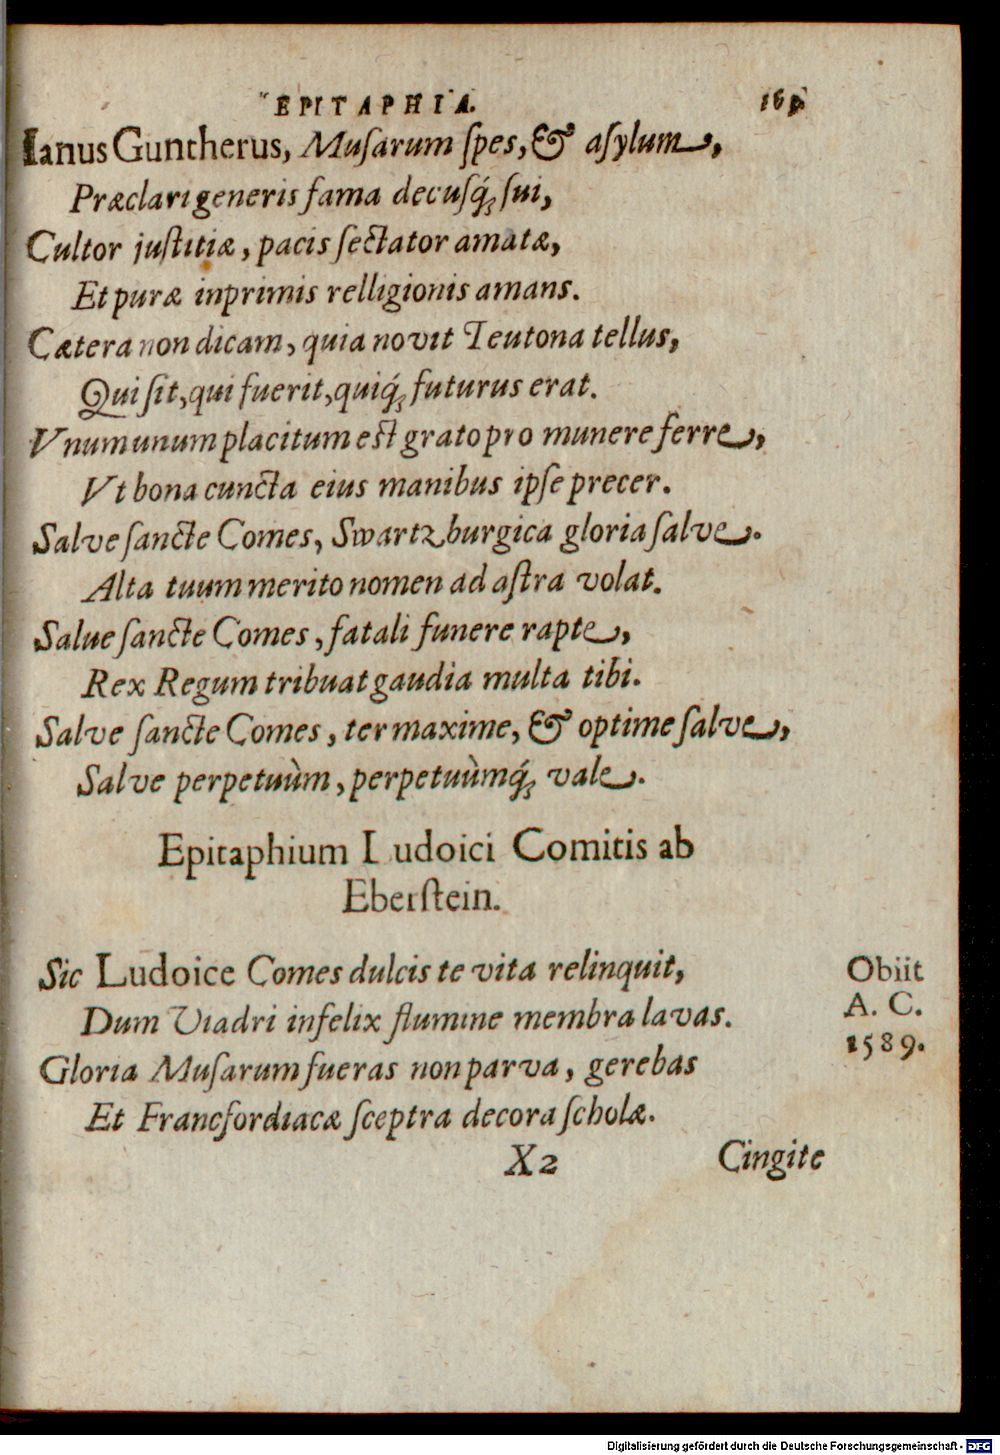 EPITAPHIA.
Ianus Guntherus, Musarum spes, & asylum,
Præclari generis fama decusq́; sui,
Cultor justitiæ, pacis sectator amatæ,
Et puræ inprimis relligionis amans.
Cætera non dicam, quia novit Teutona tellus,
Qui sit, qui fuerit, quiq́; futurus erat.
Vnum unum placitum est grato pro munere ferre,
Vt bona cuncta eius manibus ipse precer.
Salve sancte Comes, Swartzburgica gloria salve.
Alta tuum merito nomen ad astra volat.
Salue sancte Comes, fatali funere rapte,
Rex Regum tribuat gaudia multa tibi.
Salve sancte Comes, ter maxime, & optime salve,
Salve perpetuùm, perpetuùmq́; vale.
Epitaphium Ludoici Comitis ab
Eberstein.
Sic Ludoice Comes dulcis te vita relinquit,
Dum Viadri infelix flumine membra lavas.
Gloria Musarum fueras non parva, gerebas
Et Francfordiacæ sceptra decora scholæ.
Obiit
A. C.
1589.
X2 Cingite
Digitalisierung gefördert durch die Deutsche Forschungsgemeinschaft - DFG